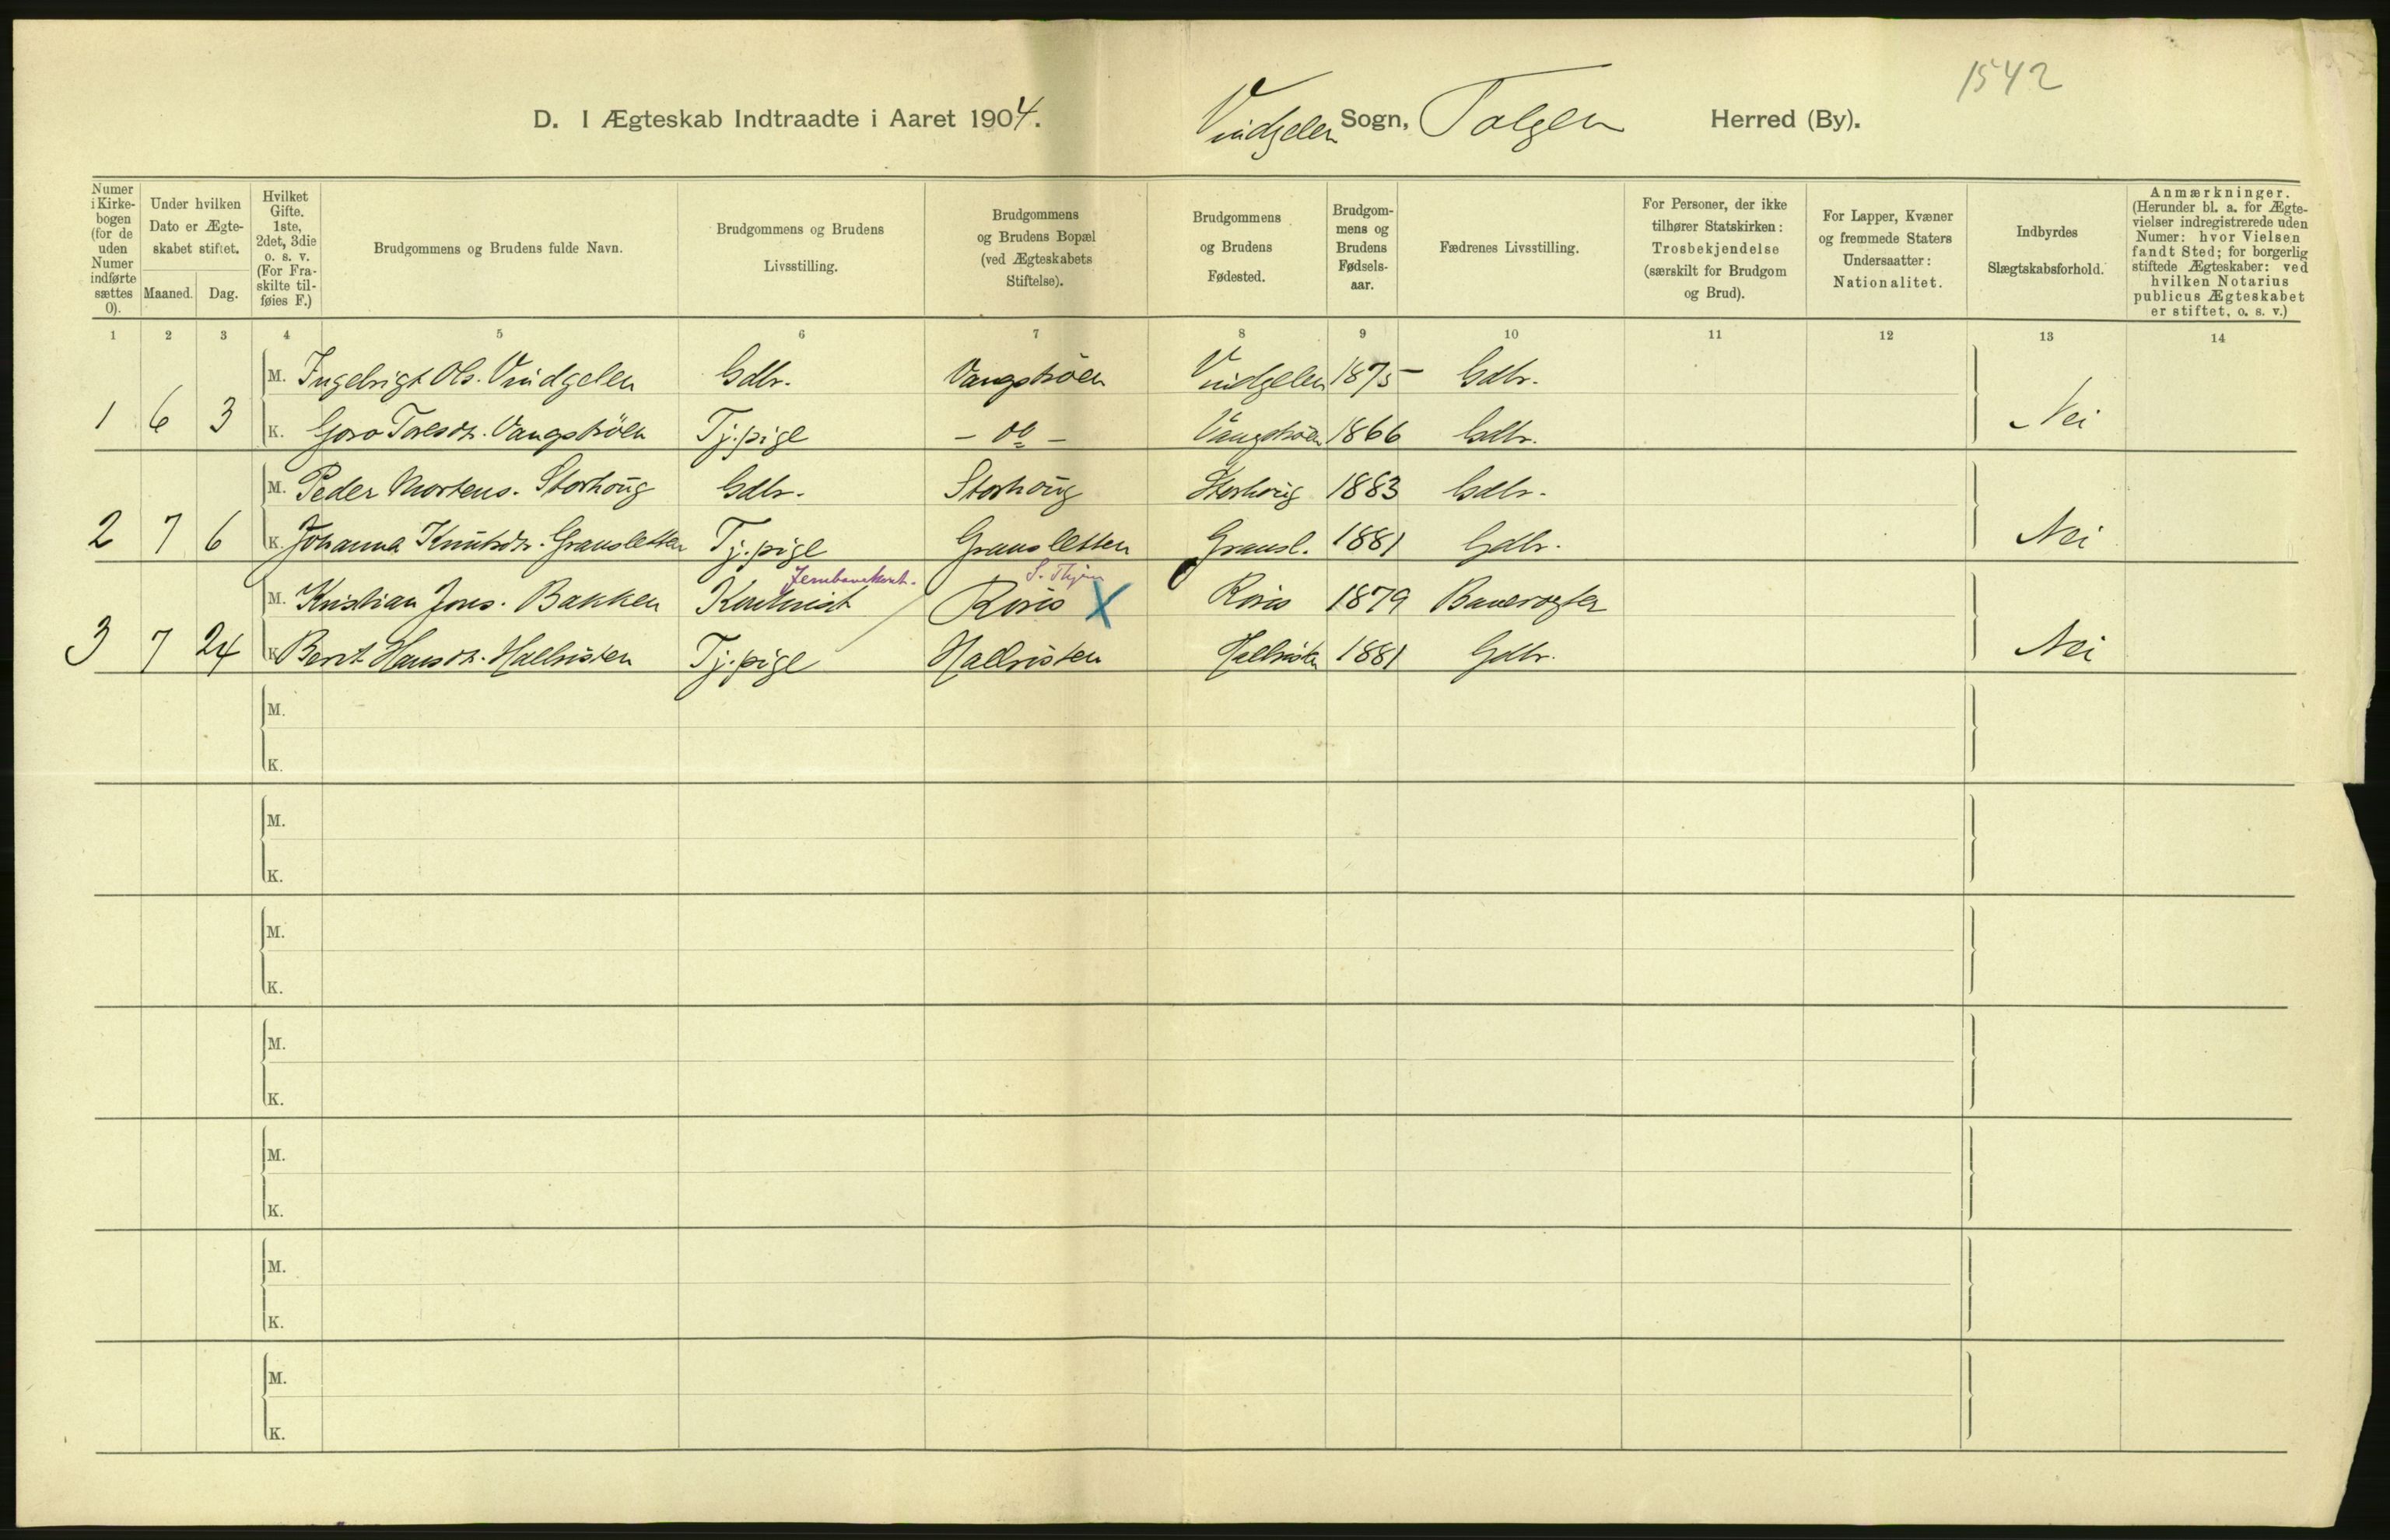 1542
D. I Ægteskab Indtraadte i Aaret 1904. Vindgelen Sogn, Tolgen Herred (By).
Numer i Kirkebogen (for de uden Numer indførte sættes 0).
Under hvilken Dato er Ægteskabet stiftet.
Maaned. Dag.
Hvilket Gifte. 1ste, 2det, 3die o. s. v. (For Fraskilte tilføies F.)
Brudgommens og Brudens fulde Navn.
Brudgommens og Brudens Livsstilling.
Brudgommens og Brudens Bopæl (ved Ægteskabets Stiftelse).
Brudgommens og Brudens Fødested.
Brudgommens og Brudens Fødselsaar.
Fædrenes Livsstilling.
For Personer, der ikke tilhører Statskirken: Trosbekjendelse (særskilt for Brudgom og Brud).
For Lapper, Kvæner og fremmede Staters Undersaatter: Nationalitet.
Indbyrdes Slægtskabsforhold.
Anmærkninger. (Herunder bl. a. for Ægtevielser indregistrerede uden Numer: hvor Vielsen fandt Sted; for borgerlig stiftede Ægteskaber: ved hvilken Notarius publicus Ægteskabet er stiftet, o. s. v.)
1 2 3 4 5 6 7 8 9 10 11 12 13 14
M. Ingebrigt Ols. Vindgelen Gdbr. Vangströen Vindgelen 1875 Gdbr.
1 6 3 K. Goro Toresdr. Vangströen Tj.pige - do - Vangströen 1866 Gdbr. Nei
M. Peder Mortens. Storhoug Gdbr. Storhoug Storhoug 1883 Gdbr.
2 7 6 K. Johanna Knutsdr. Gransletten Tj.pige Gransletten Gransl. 1881 Gdbr. Nei
M. Kristian Jons. Bakken Röros X Röros 1879 Banevogter
3 7 24 K Berit Hansdr. Hallristen Tj.pige Hallristen Hallristen 1881 Gdbr. Nei
M.
K.
M.
K.
M.
K.
M.
K.
M.
K.
M.
K.
M.
K.